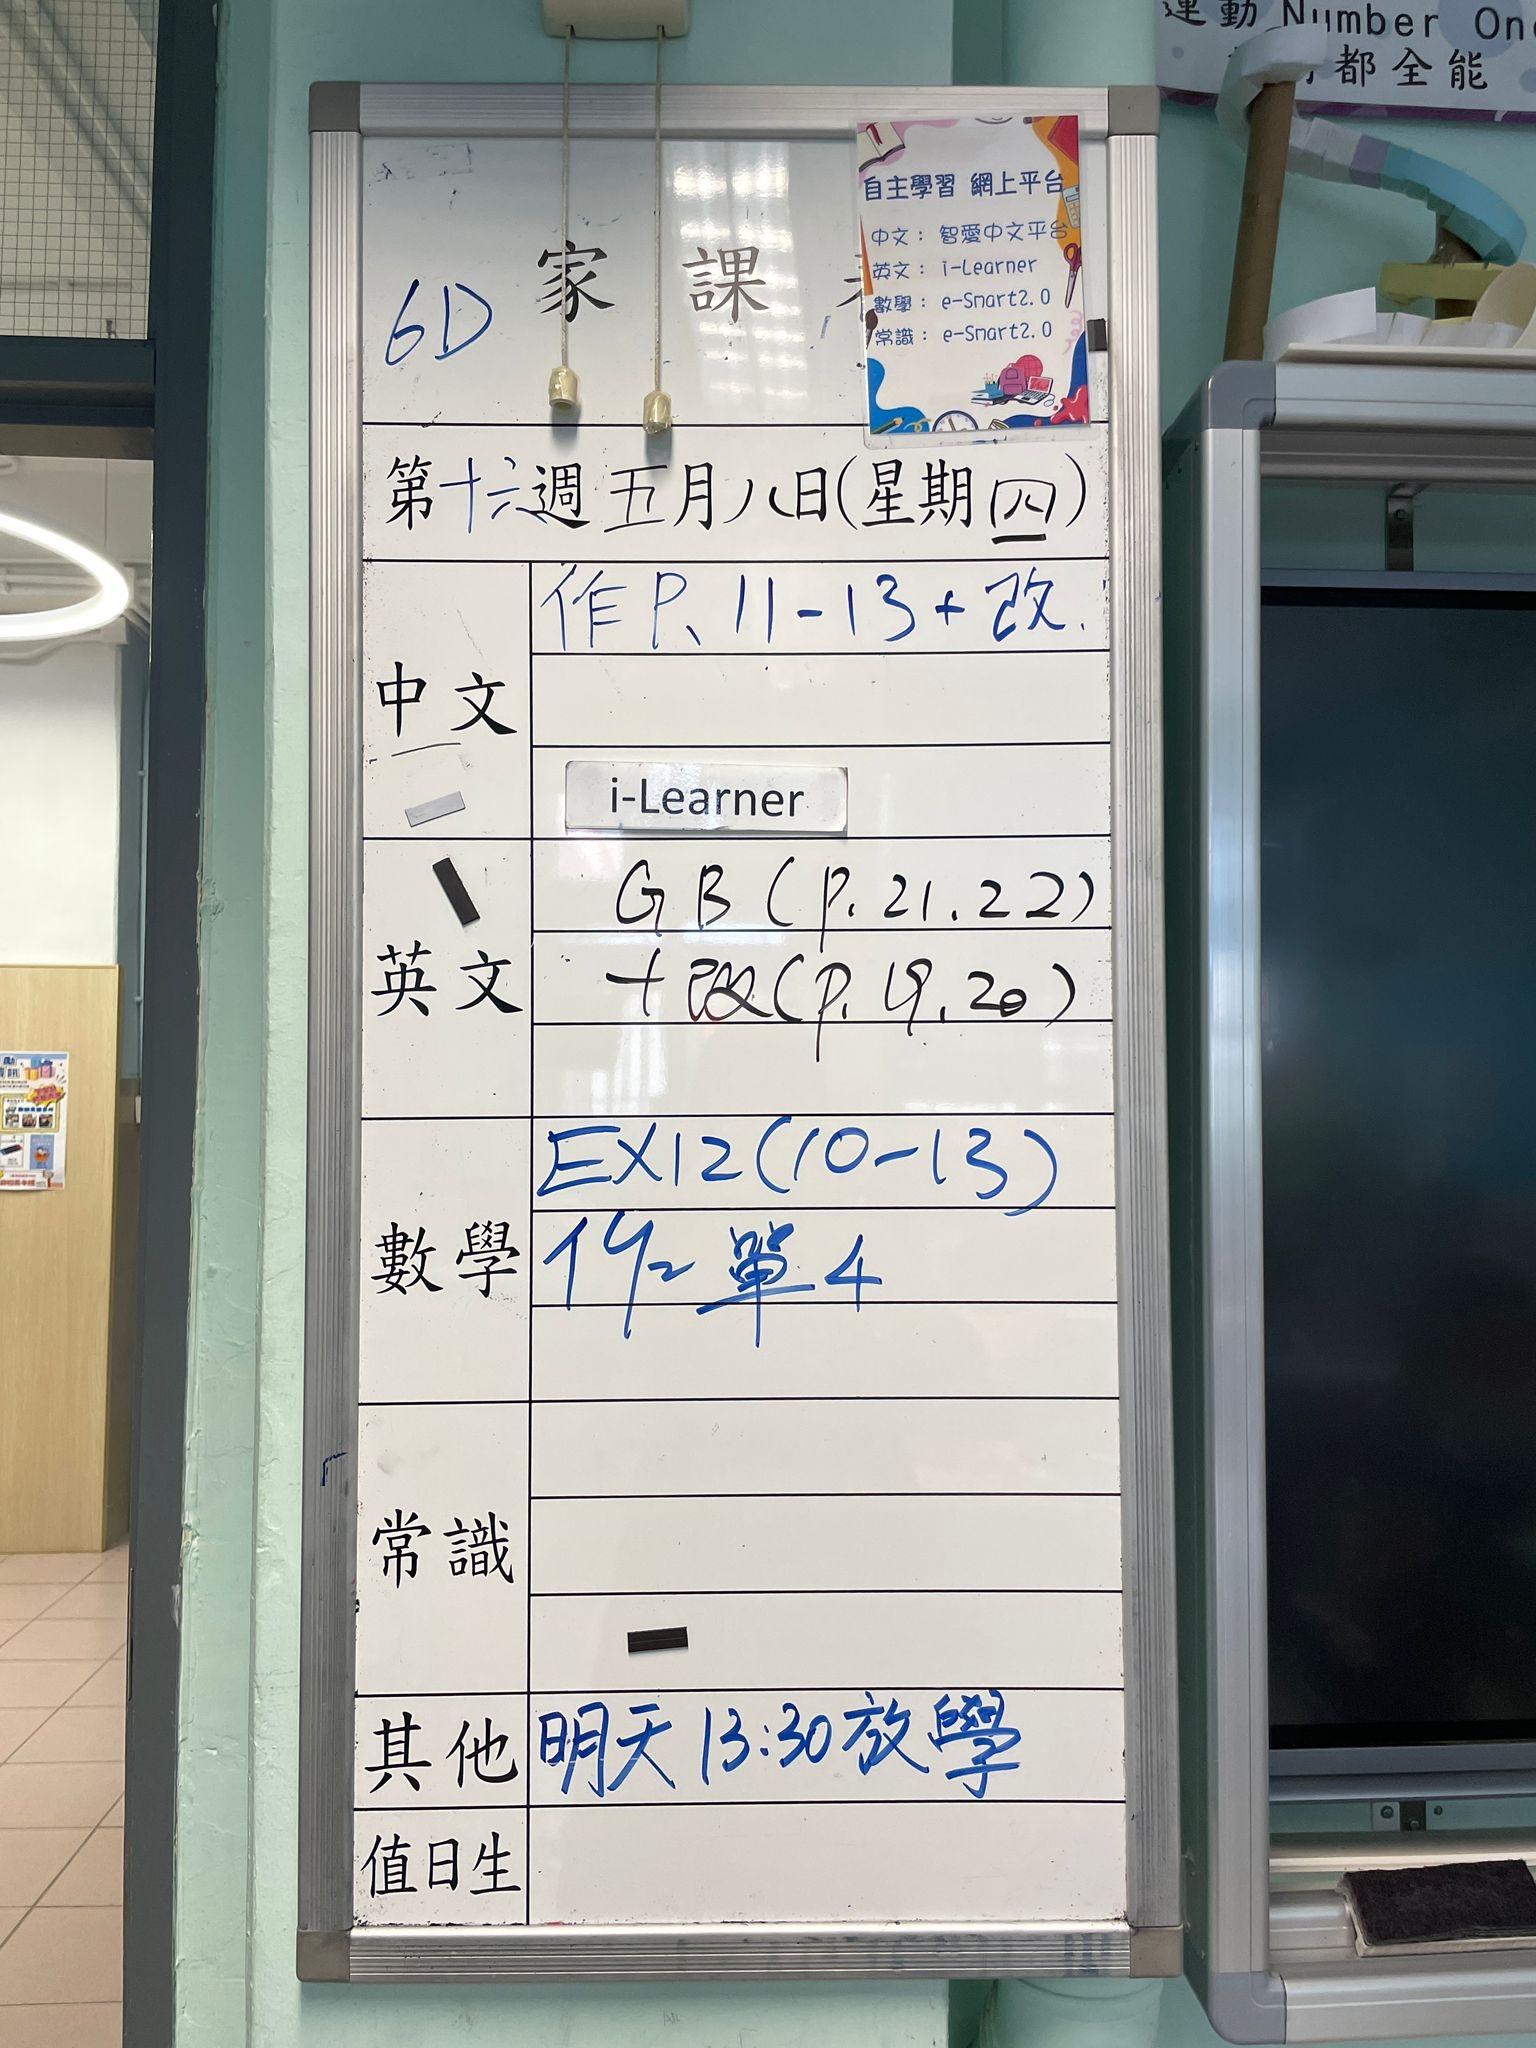 運動 Number One
都全能
自主學習 網上平台
中文： 智愛中文平台
英文： i-Learner
數學： e-Smart2.0
常識： e-Smart2.0
家課
6D
第十六週五月八日(星期四)
中文
作P. 11-13+改.
i-Learner
英文
GB (P. 21. 22)
+改(P. 19. 20)
數學
EX12(10-13)
作 單4
常識
其他
明天13:30放學
值日生